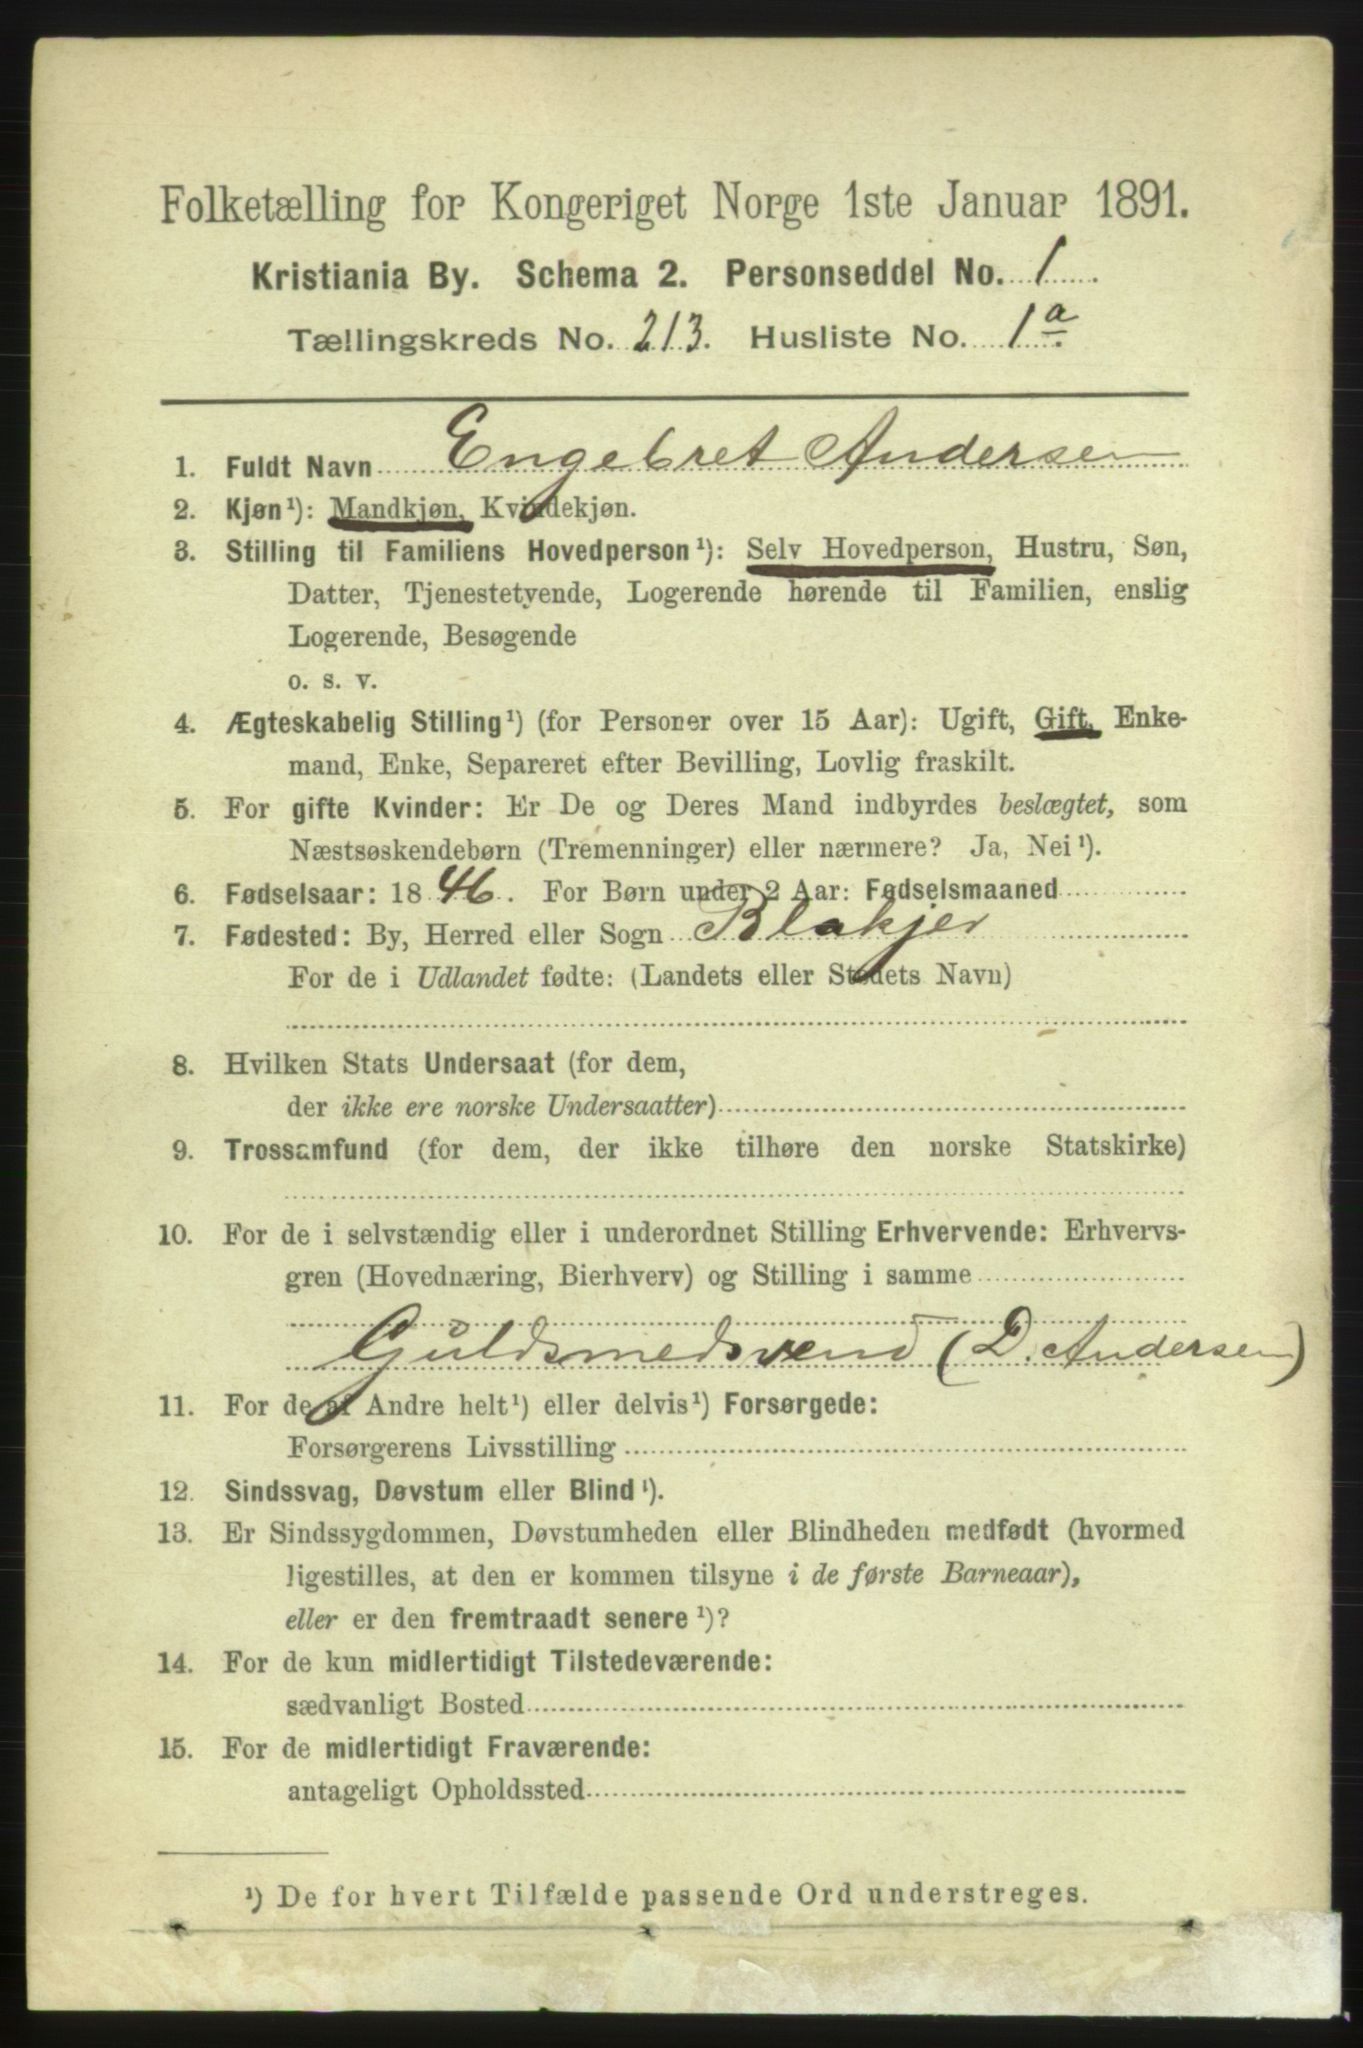 Folketælling for Kongeriget Norge 1ste Januar 1891.
Kristiania By. Schema 2. Personseddel No. 1
Tællingskreds No. 213. Husliste No. 1a
1. Fuldt Navn Engebret Andersen
2. Kjøn¹): Mandkjøn, Kvindekjøn.
3. Stilling til Familiens Hovedperson¹): Selv Hovedperson, Hustru, Søn,
Datter, Tjenestetyende, Logerende hørende til Familien, enslig
Logerende, Besøgende
o. s. v.
4. Ægteskabelig Stilling¹) (for Personer over 15 Aar): Ugift, Gift, Enke-
mand, Enke, Separeret efter Bevilling, Lovlig fraskilt.
5. For gifte Kvinder: Er De og Deres Mand indbyrdes beslægtet, som
Næstsøskendebørn (Tremenninger) eller nærmere? Ja, Nei¹).
6. Fødselsaar: 1846. For Børn under 2 Aar: Fødselsmaaned
7. Fødested: By, Herred eller Sogn Blakjer
For de i Udlandet fødte: (Landets eller Stedets Navn)
8. Hvilken Stats Undersaat (for dem,
der ikke ere norske Undersaatter)
9. Trossamfund (for dem, der ikke tilhøre den norske Statskirke)
10. For de i selvstændig eller i underordnet Stilling Erhvervende: Erhvervs-
gren (Hovednæring, Bierhverv) og Stilling i samme
Guldsmedsvend (D. Andersen)
11. For de af Andre helt¹) eller delvis¹) Forsørgede:
Forsørgerens Livsstilling
12. Sindssvag, Døvstum eller Blind¹).
13. Er Sindssygdommen, Døvstumheden eller Blindheden medfødt (hvormed
ligestilles, at den er kommen tilsyne i de første Barneaar),
eller er den fremtraadt senere¹)?
14. For de kun midlertidigt Tilstedeværende:
sædvanligt Bosted
15. For de midlertidigt Fraværende:
antageligt Opholdssted
¹) De for hvert Tilfælde passende Ord understreges.